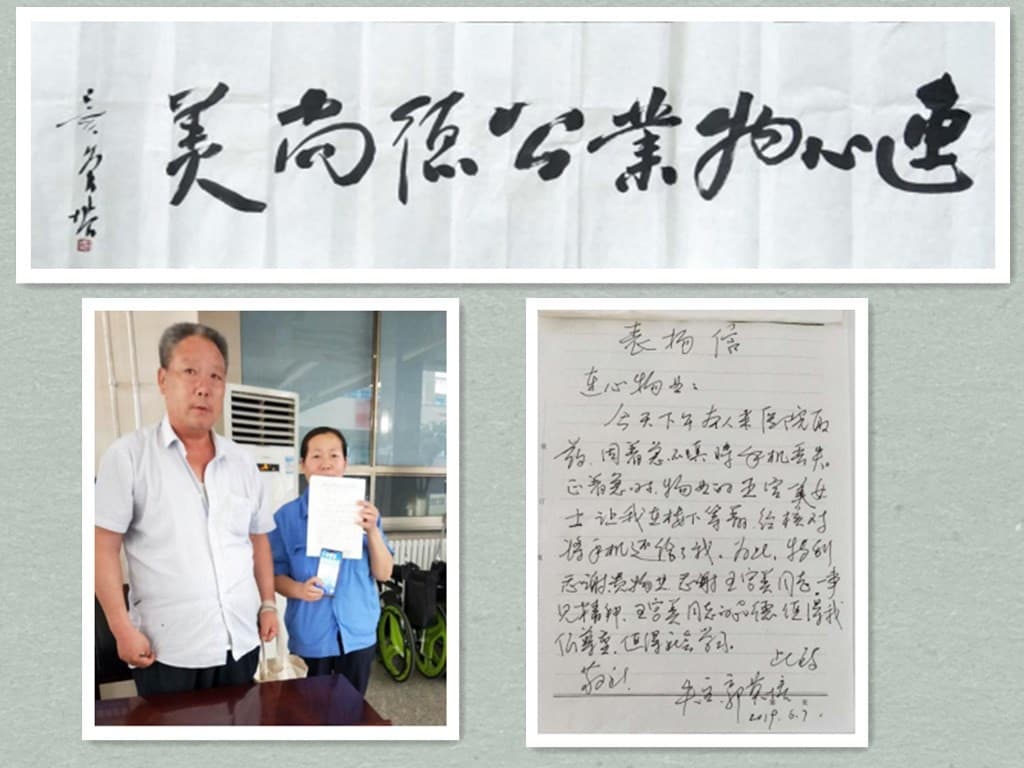 連心物業公德尚美
表扬信
连心物业：
今天下午本人来医院取
药，因着急不慎将手机丢失。
正着急时，物业的王美女
士让我在楼下等着，经核对
将手机还给了我。为此，特别
感谢贵物业，感谢王美同志。事
见精神，王美同志的品德值得我
们尊重，值得社会学习。
此致
敬礼！
失主：郭英
2019.6.7.